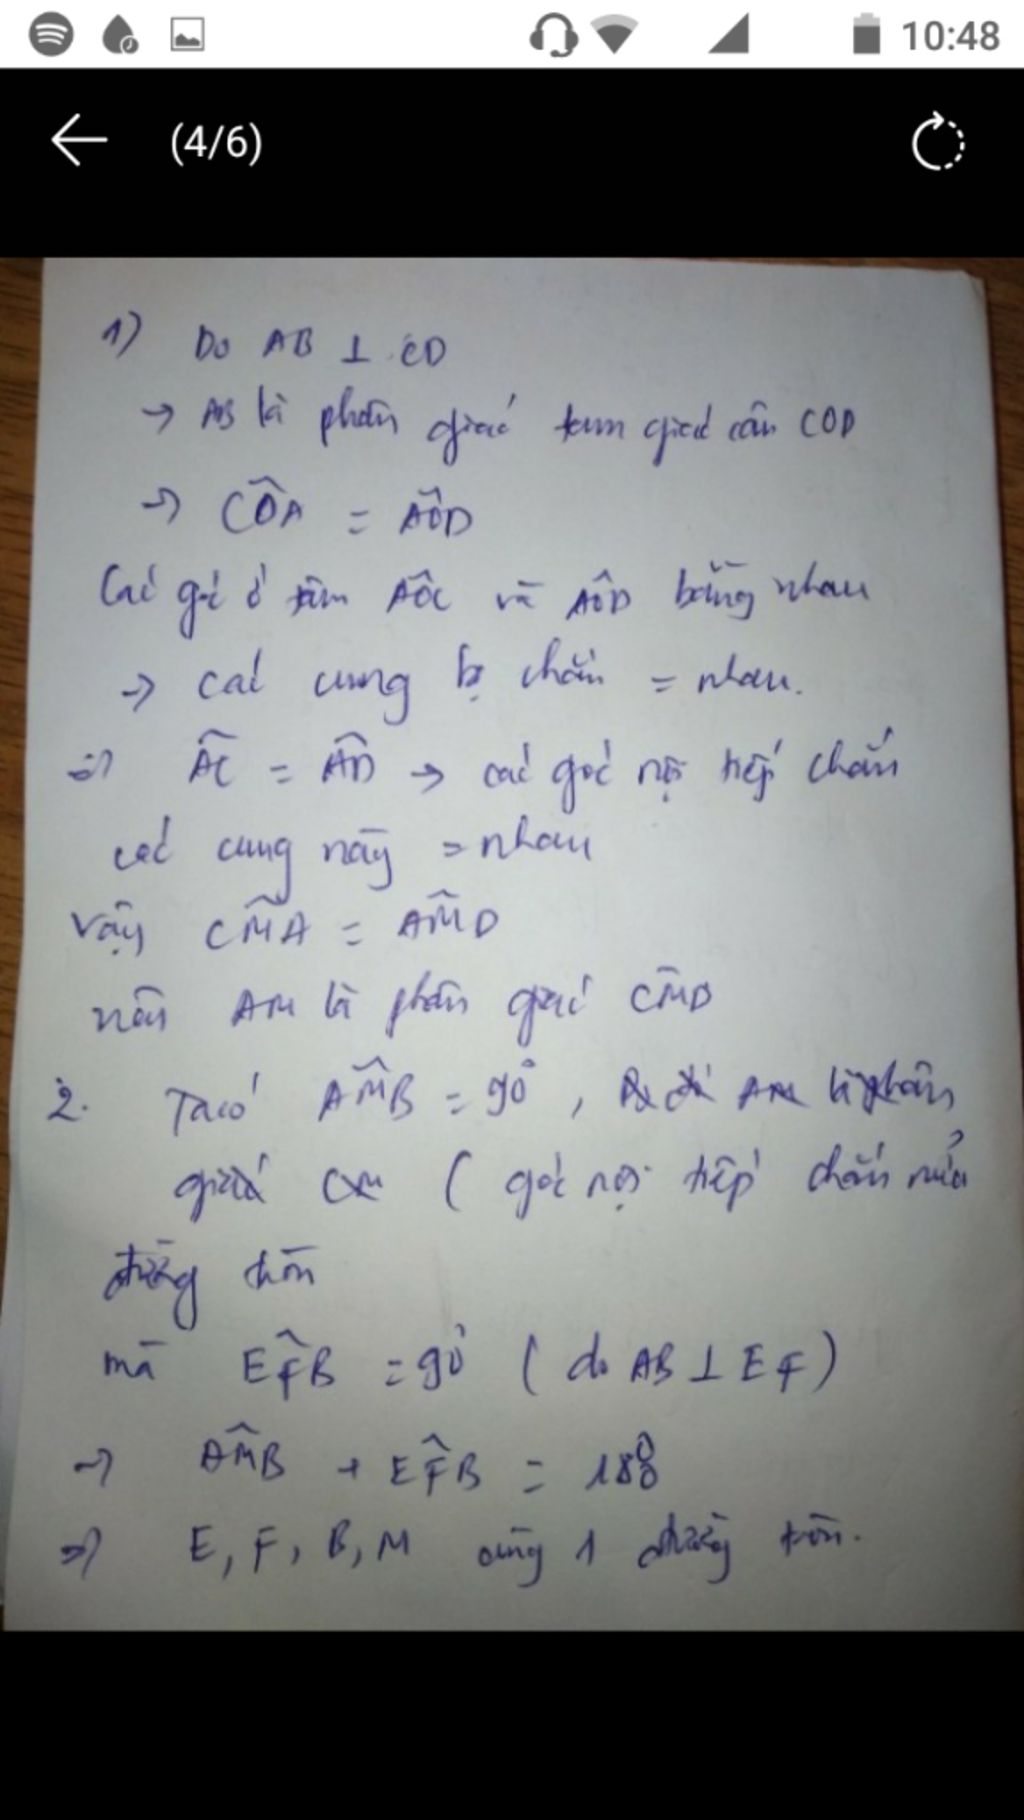 10:48
(4/6)
1) Do AB ⊥ CD
→ AB là phân giác tam giác cân COD
→ CÔA = AÔD
Các góc ở tâm AÔC và AÔD bằng nhau
→ các cung bị chắn = nhau.
⇒ AC = AD → các góc nội tiếp chắn
các cung này = nhau
Vậy CM̂A = AM̂D
nên AM là phân giác CM̂D
2. Ta có AM̂B = 90°, AM là phân
giác CM ( góc nội tiếp chắn nửa
đường tròn
mà EF̂B = 90° ( do AB ⊥ EF )
→ AM̂B + EF̂B = 180°
⇒ E, F, B, M cùng 1 đường tròn.